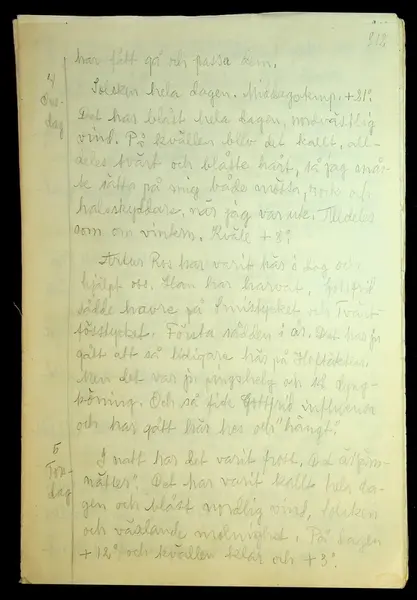 har fått gå och passa dem.
4 Solsken hela dagen. Middagstemp. +21°.
Ons- Det har blåst hela dagen, nordvästlig
dag vind. På kvällen blev det kallt, all-
deles tvärt och blåste hårt, så jag
sätta på mig både mössa, rock och
halsskyddare, när jag var ute. Alldeles
som om vintern. Kväll + 8°.
Artur Ros har varit här i dag och
hjälpt oss. Han har harvat, Gottfrid
sådde havre på och Tvärt-
Första sådden i år. Det har ju
gått att så tidigare här på
Men det var ju pingsthelg och så
körning. Och så fick Gottfrid influensa
och har gått här hos och "hängt".
5 I natt har det varit frost. Det är "järn-
Tors- nätter". Det har varit kallt hela da-
dag gen och blåst nordlig vind, solsken
och växlande molnighet. På dagen
+ 12° och kvällen klar och + 3°.